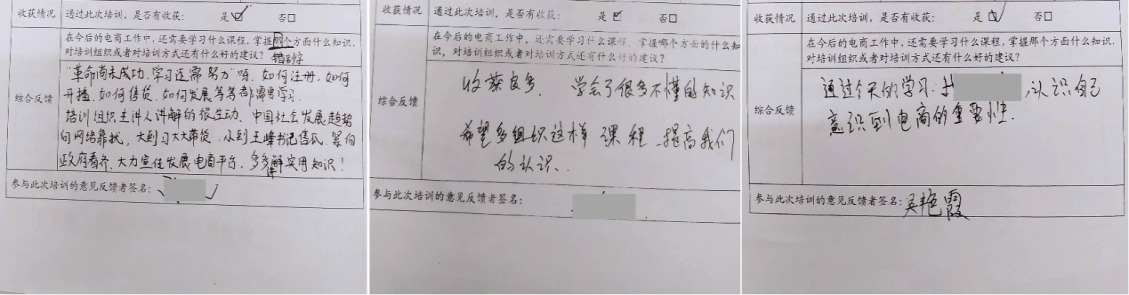 收获情况 通过此次培训，是否有收获： 是☑ 否□
在今后的电商工作中，还需要学习什么课程，掌握那个方面什么知识，
对培训组织或者对培训方式还有什么好的建议？ 错别字
综合反馈
"革命尚未成功，学习还需努力"呀，如何注册，如何
开播，如何售货，如何发展等等都需要学习。
培训组织主讲人讲解的很生动，中国社会发展趋势
向网络靠拢，大到习大大带货，小到王峰书记售瓜，
政府看齐，大力宣传发展电商平台，多多讲解实用知识！
参与此次培训的意见反馈者签名：
收获情况 通过此次培训，是否有收获： 是☑ 否□
在今后的电商工作中，还需要学习什么课程，掌握哪个方面的什么知
识，对培训组织或者对培训方式还有什么好的建议？
综合反馈
收获良多，学会了很多不懂的知识
希望多组织这样课程，提高我们
的认识．
参与此次培训的意见反馈者签名：
收获情况 通过此次培训，是否有收获： 是☑ 否□
在今后的电商工作中，还需要学习什么课程，掌握那个方面什么知识，
对培训组织或者对培训方式还有什么好的建议？
综合反馈
通过今天的学习，我 ，认识自己
意识到电商的重要性．
参与此次培训的意见反馈者签名：吴艳霞